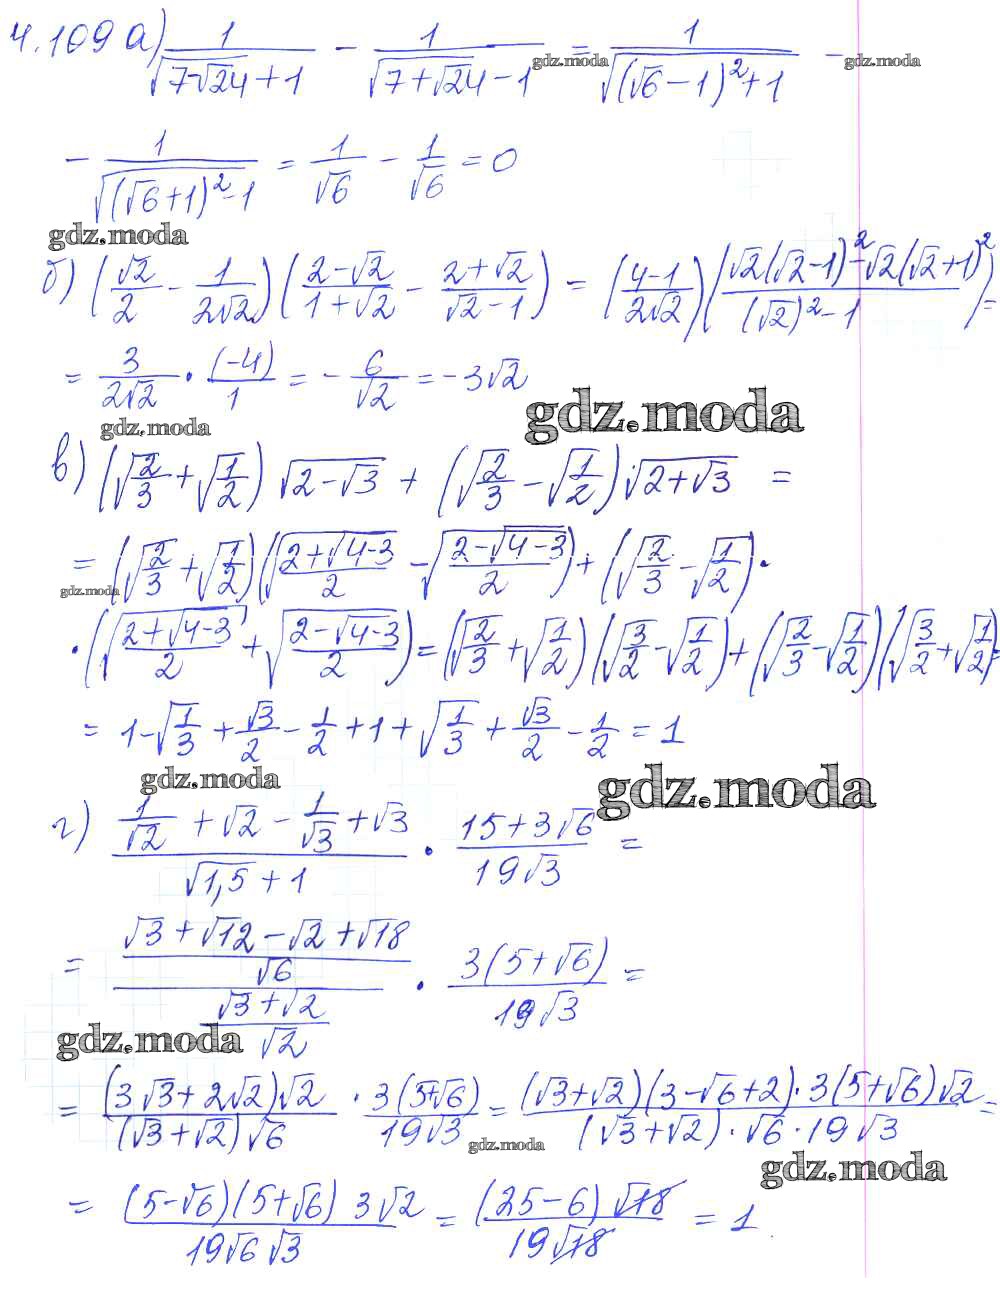 4.109 а) 1/(√(7-√24)+1) - 1/(√(7+√24)-1) = 1/(√((√6-1)²)+1) -
gdz.moda gdz.moda
- 1/(√((√6+1)²)-1) = 1/√6 - 1/√6 = 0
gdz.moda
б) (√2/2 - 1/(2√2))((2-√2)/(1+√2) - (2+√2)/(√2-1)) = ((4-1)/(2√2))((√2(√2-1)²-√2(√2+1)²)/((√2)²-1)) =
= 3/(2√2) · (-4)/1 = - 6/√2 = -3√2
gdz.moda
gdz.moda
в) (√(2/3) + √(1/2)) √(2-√3) + (√(2/3) - √(1/2)) · √(2+√3) =
= (√(2/3) + √(1/2))(√((2+√(4-3))/2) - √((2-√(4-3))/2)) + (√(2/3) - √(1/2)) ·
gdz.moda
· (√((2+√(4-3))/2) + √((2-√(4-3))/2)) = (√(2/3) + √(1/2))(√(3/2) - √(1/2)) + (√(2/3) - √(1/2))(√(3/2) + √(1/2)) =
= 1 - √(1/3) + √3/2 - 1/2 + 1 + √(1/3) + √3/2 - 1/2 = 1
gdz.moda
gdz.moda
г) (1/√2 + √2 - 1/√3 + √3)/(√1,5 + 1) · (15+3√6)/(19√3) =
= ((√3+√12-√2+√18)/√6)/((√3+√2)/√2) · 3(5+√6)/(19√3) =
gdz.moda
= (3√3+2√2)√2/((√3+√2)√6) · 3(5+√6)/(19√3) = (√3+√2)(3-√6+2)·3(5+√6)√2/((√3+√2)·√6·19√3) =
gdz.moda
gdz.moda
= (5-√6)(5+√6) 3√2/(19√6 √3) = (25-6)√18/(19√18) = 1